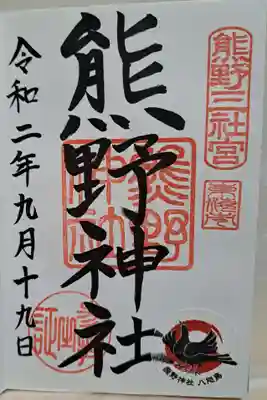 熊野三社宮
熊野神社
令和二年九月十九日
熊野神社
熊野神社 八咫烏